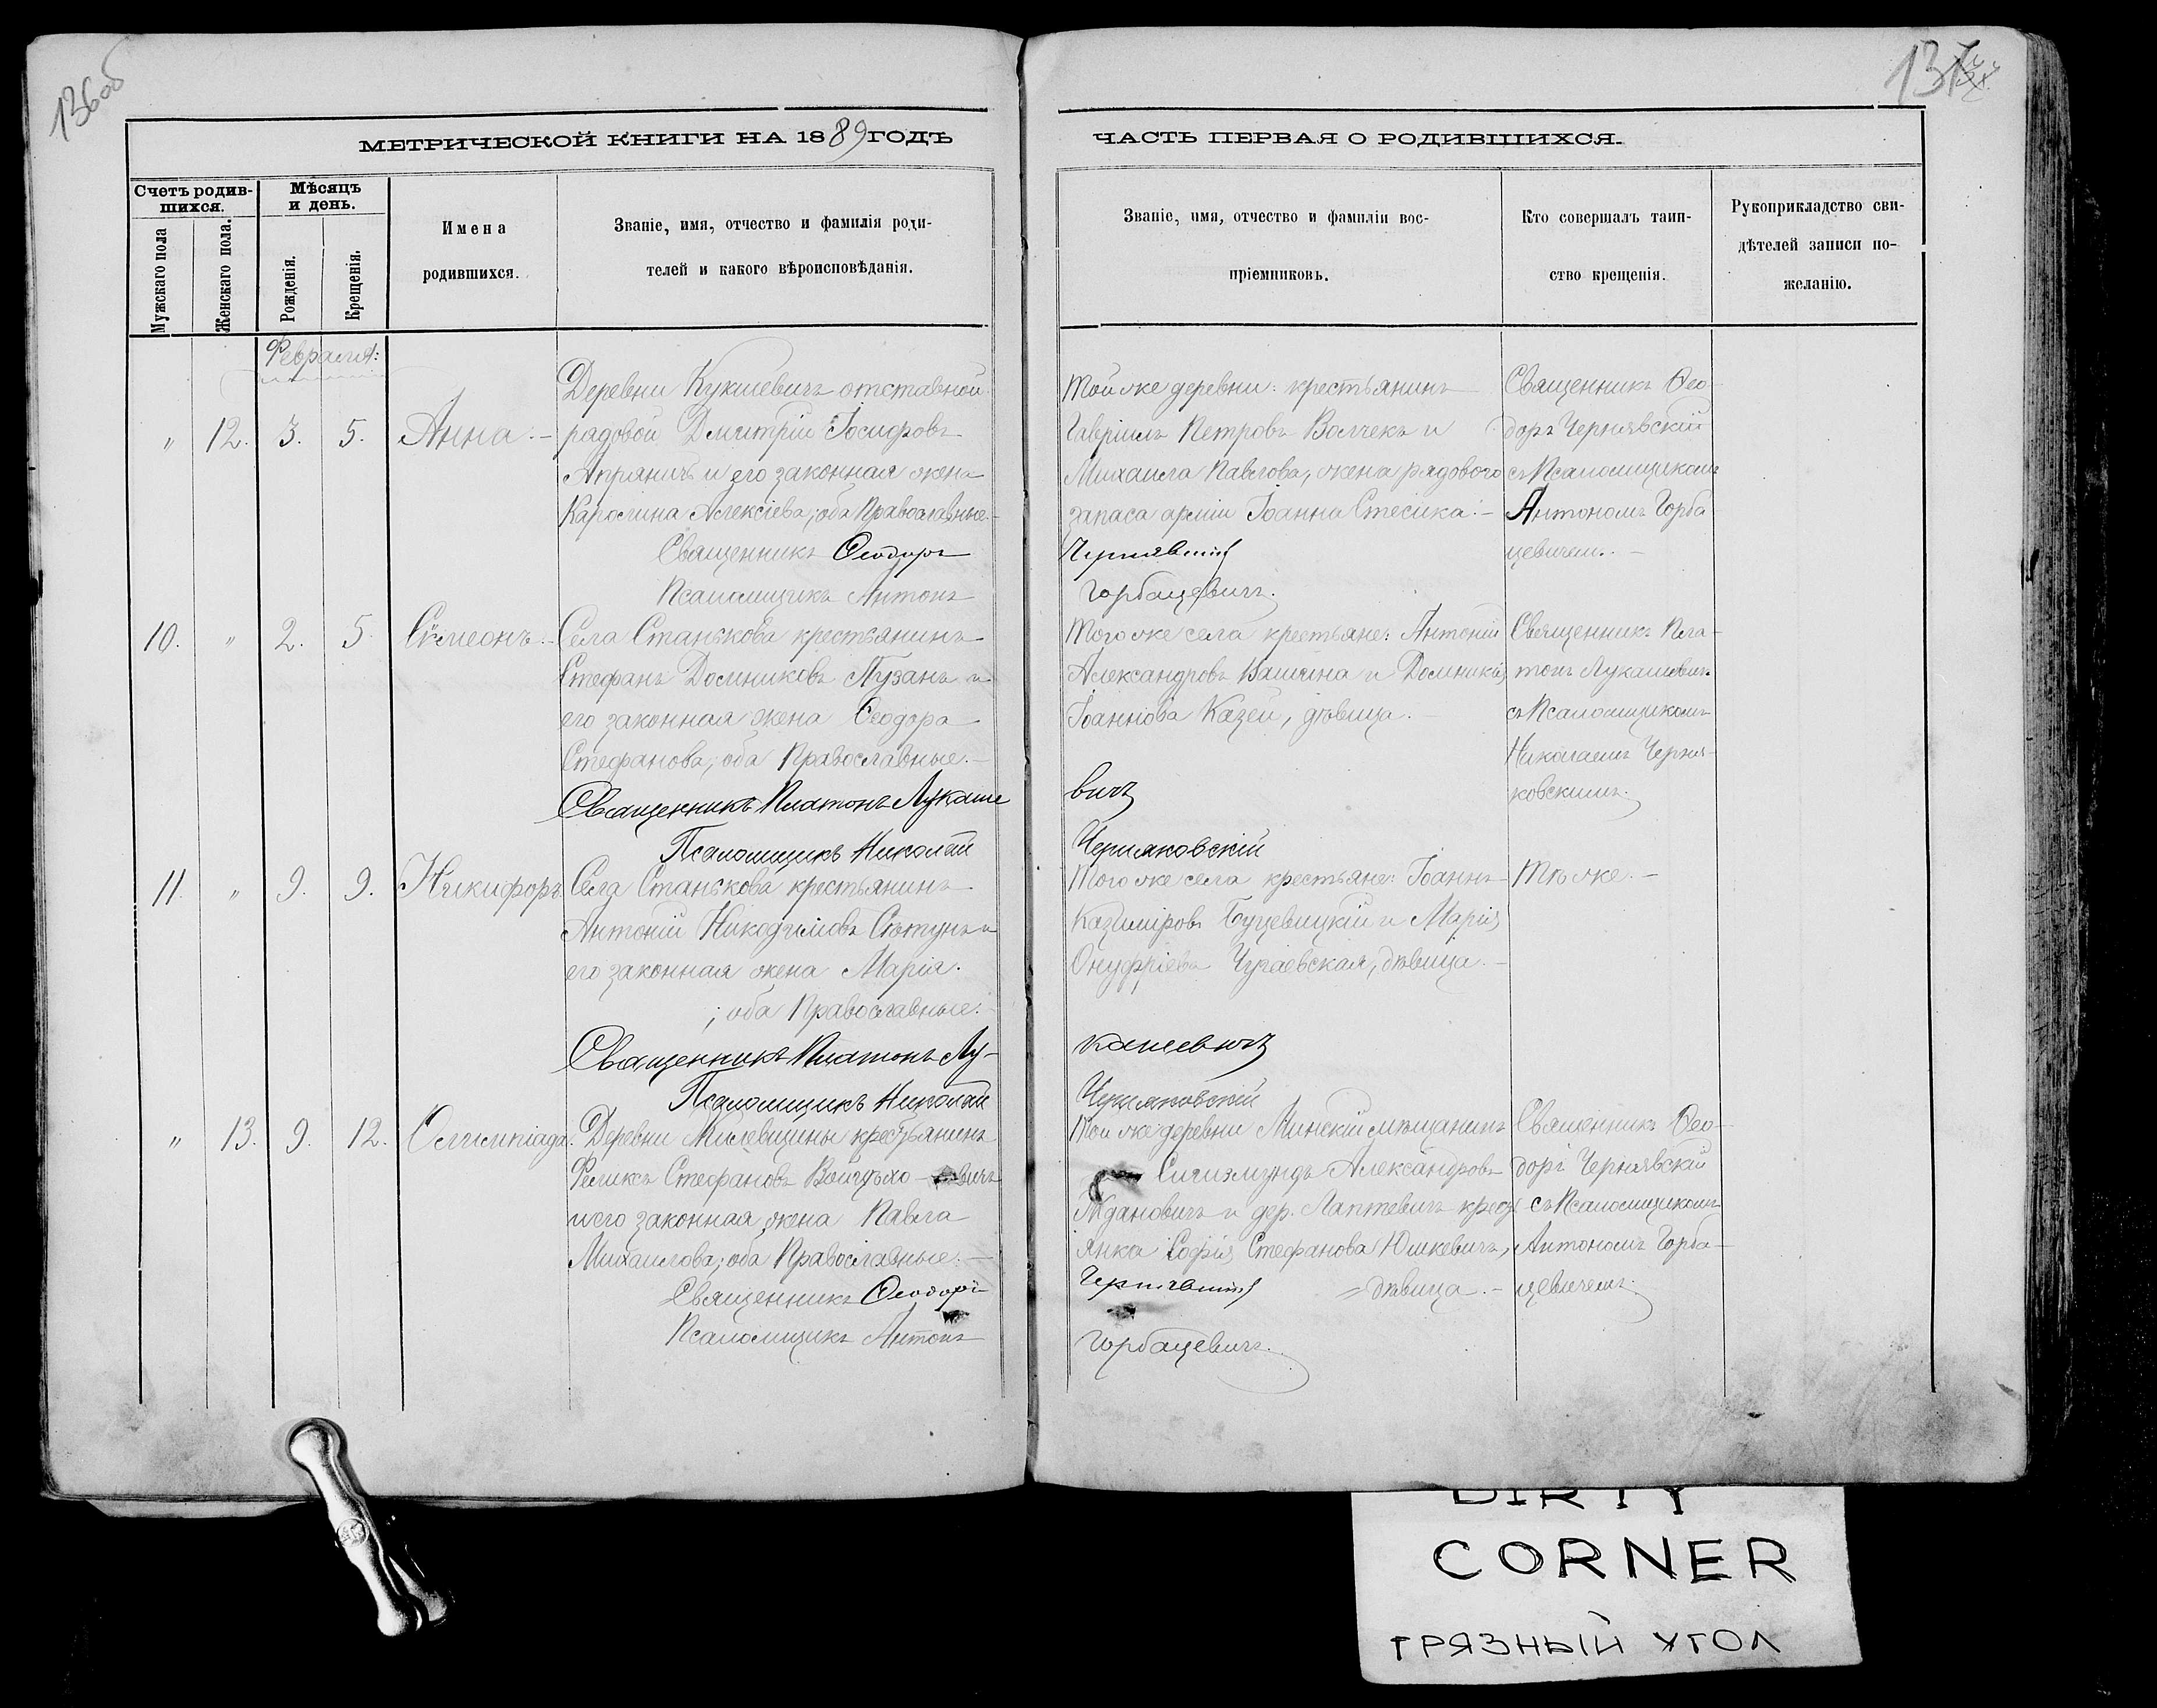 136об
137
МЕТРИЧЕСКОЙ КНИГИ НА 1889 ГОДЪ
ЧАСТЬ ПЕРВАЯ О РОДИВШИХСЯ.
Счетъ родив-
шихся.
Мужскаго пола
Женскаго пола.
Мѣсяцъ
и день.
Рожденія.
Крещенія.
Имена
родившихся.
Званіе, имя, отчество и фамилія роди-
телей и какого вѣроисповѣданія.
Званіе, имя, отчество и фамиліи вос-
пріемниковъ.
Кто совершалъ таин-
ство крещенія.
Рукоприкладство сви-
дѣтелей записи по-
желанію.
Февраля:
" 12. 3. 5. Анна.-
Деревни Кукшевичъ отставной
рядовой Дмитрій Іосифовъ
и его законная жена
Каролина Алексіева; оба Православные.-
Священникъ Ѳеодоръ
Псаломщикъ Антонъ
Той же деревни: крестьянинъ
Гавріилъ Петровъ Волчекъ и
Михаила Павлова, жена рядового
запаса арміи Іоанна Стесика.-
Чернявскій
Горбацевичъ.
Священникъ Ѳео-
доръ Чернявскій
съ Псаломщикомъ
Антономъ Горба
цевичем.-
10. " 2. 5. Сѵмеонъ.-
Села Станькова крестьянинъ
Стефанъ Домниковъ Пузанъ и
его законная жена Ѳеодора
Стефанова; оба Православные.-
Священникъ Платонъ Лукаше
Псаломщикъ Николай
Того же села крестьяне: Антоній
Александровъ Вашина и Домникія
Іоаннова Казей, дѣвица.-
вичъ
Черняковскій
Священникъ Пла-
тонъ Лукашевичъ
съ Псаломщикомъ
Николаемъ Черня-
ковскимъ.
11. " 9. 9. Никифоръ.
Села Станькова крестьянинъ
Антоній Никодимовъ и
его законная жена Марія.
; оба Православные.-
Священникъ Платонъ Лу-
Псаломщикъ Николай
Того же села крестьяне: Іоаннъ
Казиміровъ Буцевицкій и Марія
Онуфріева Чугаевская, дѣвица.-
кашевичъ
Черняковскій
Тѣ же.-
" 13. 9. 12. Олимпіада.
Деревни Милевщины крестьянинъ
Феликсъ Стефановъ
и его законная жена Павла
Михаилова; оба Православные.-
Священникъ Ѳеодоръ
Псаломщикъ Антонъ
Той же деревни Минскій мѣщанинъ
Сигизмундъ Александровъ
Ждановичъ и дер. Лаптевичъ крест
янка Софія Стефанова Юшкевичъ,
Чернявскій = дѣвица.-
Горбацевичъ.
Священникъ Ѳео-
доръ Чернявскій
съ Псаломщикомъ
Антономъ Горба-
цевичемъ.
DIRTY
CORNER
ГРЯЗНЫЙ УГОЛ